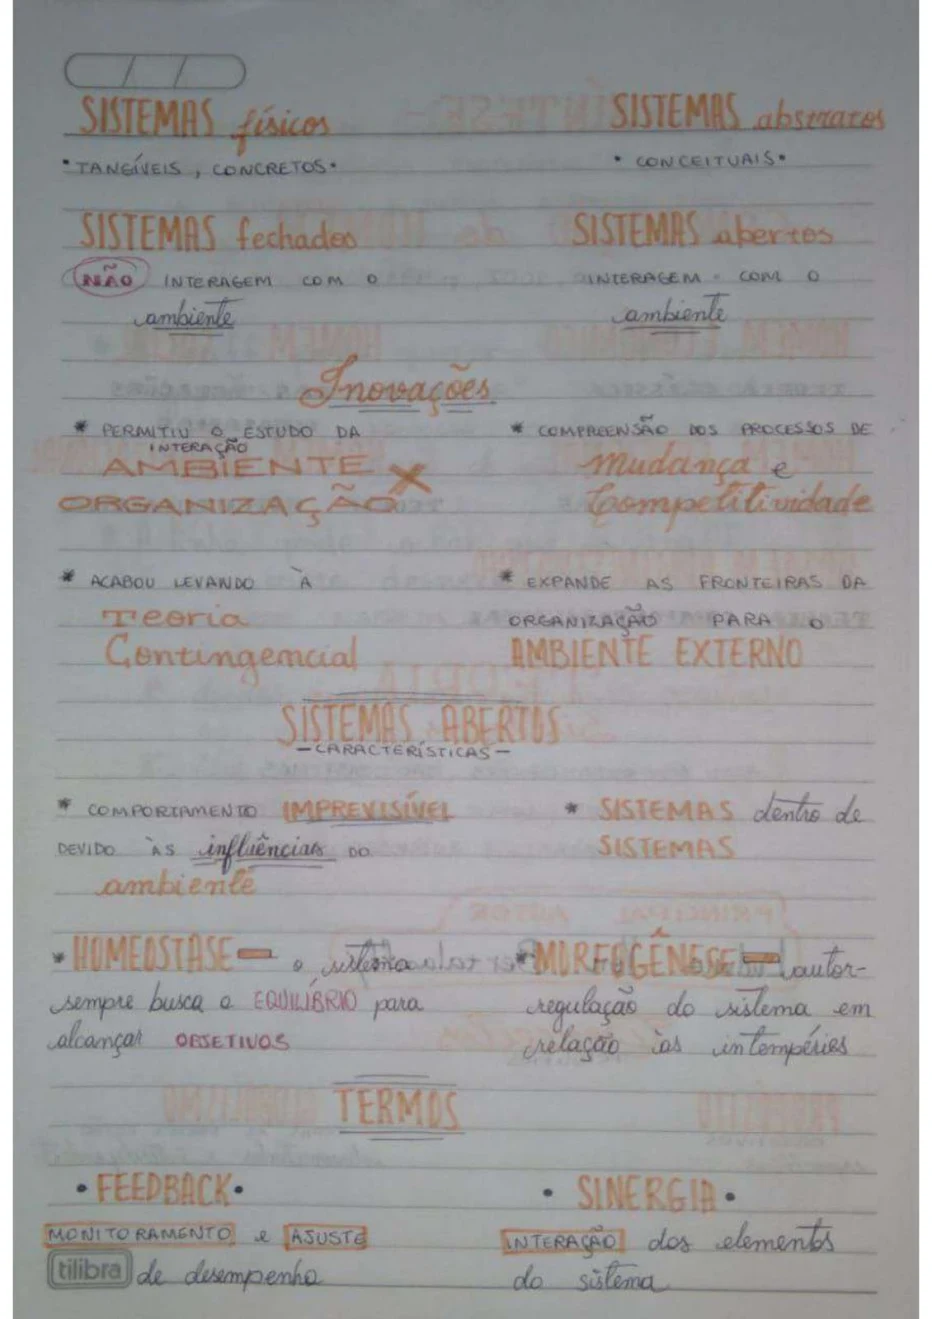 SISTEMAS físicos
• TANGÍVEIS, CONCRETOS •
SISTEMAS abstratos
• CONCEITUAIS •
SISTEMAS fechados
NÃO INTERAGEM COM O
ambiente
SISTEMAS abertos
INTERAGEM COM O
ambiente
Inovações
* PERMITIU O ESTUDO DA
INTERAÇÃO
AMBIENTE X
ORGANIZAÇÃO
* COMPREENSÃO DOS PROCESSOS DE
Mudança e
Competitividade
* ACABOU LEVANDO À
Teoria
Contingencial
* EXPANDE AS FRONTEIRAS DA
ORGANIZAÇÃO PARA O
AMBIENTE EXTERNO
SISTEMAS ABERTOS
- CARACTERÍSTICAS -
* COMPORTAMENTO IMPREVISÍVEL
DEVIDO ÀS influências DO
ambiente
* SISTEMAS dentro de
SISTEMAS
* HOMEOSTASE - o sistema
sempre busca o EQUILÍBRIO para
alcançar OBJETIVOS
* MORFOGÊNESE - autor-
regulação do sistema em
relação às intempéries
TERMOS
• FEEDBACK •
MONITORAMENTO e AJUSTE
de desempenho
• SINERGIA •
INTERAÇÃO dos elementos
do sistema
tilibra